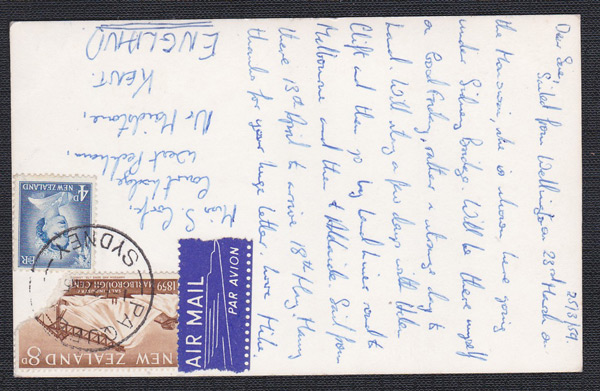 25/3/59
Dear Sue,
Sailed from Wellington on 23rd March on
the Monowai, she is shown here going
under Sydney Bridge. Will be there myself
on Good Friday, rather a strange day to
land. Will stay a few days with Helen
Clift and then go by land route to
Melbourne and then to Adelaide. Sail from
there 13th April to arrive 18th May. Many
thanks for your huge letter, love Mike.
Miss S.
Court Lodge,
West Peckham,
Nr Maidstone,
KENT.
ENGLAND
NEW ZEALAND
4D
ER
SYDNEY
PAQUEBOT
1859 MARLBOROUGH CENT
NEW ZEALAND 8D
AIR MAIL
PAR AVION